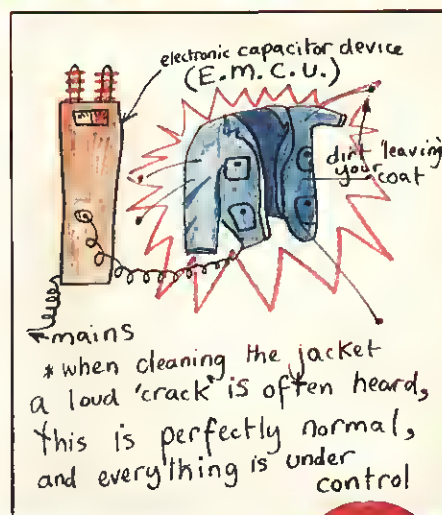 electronic capacitor device
(E.M.C.U.)
dirt 'leaving
your
coat
mains
* when cleaning the jacket
a loud 'crack' is often heard,
this is perfectly normal,
and everything is under
control